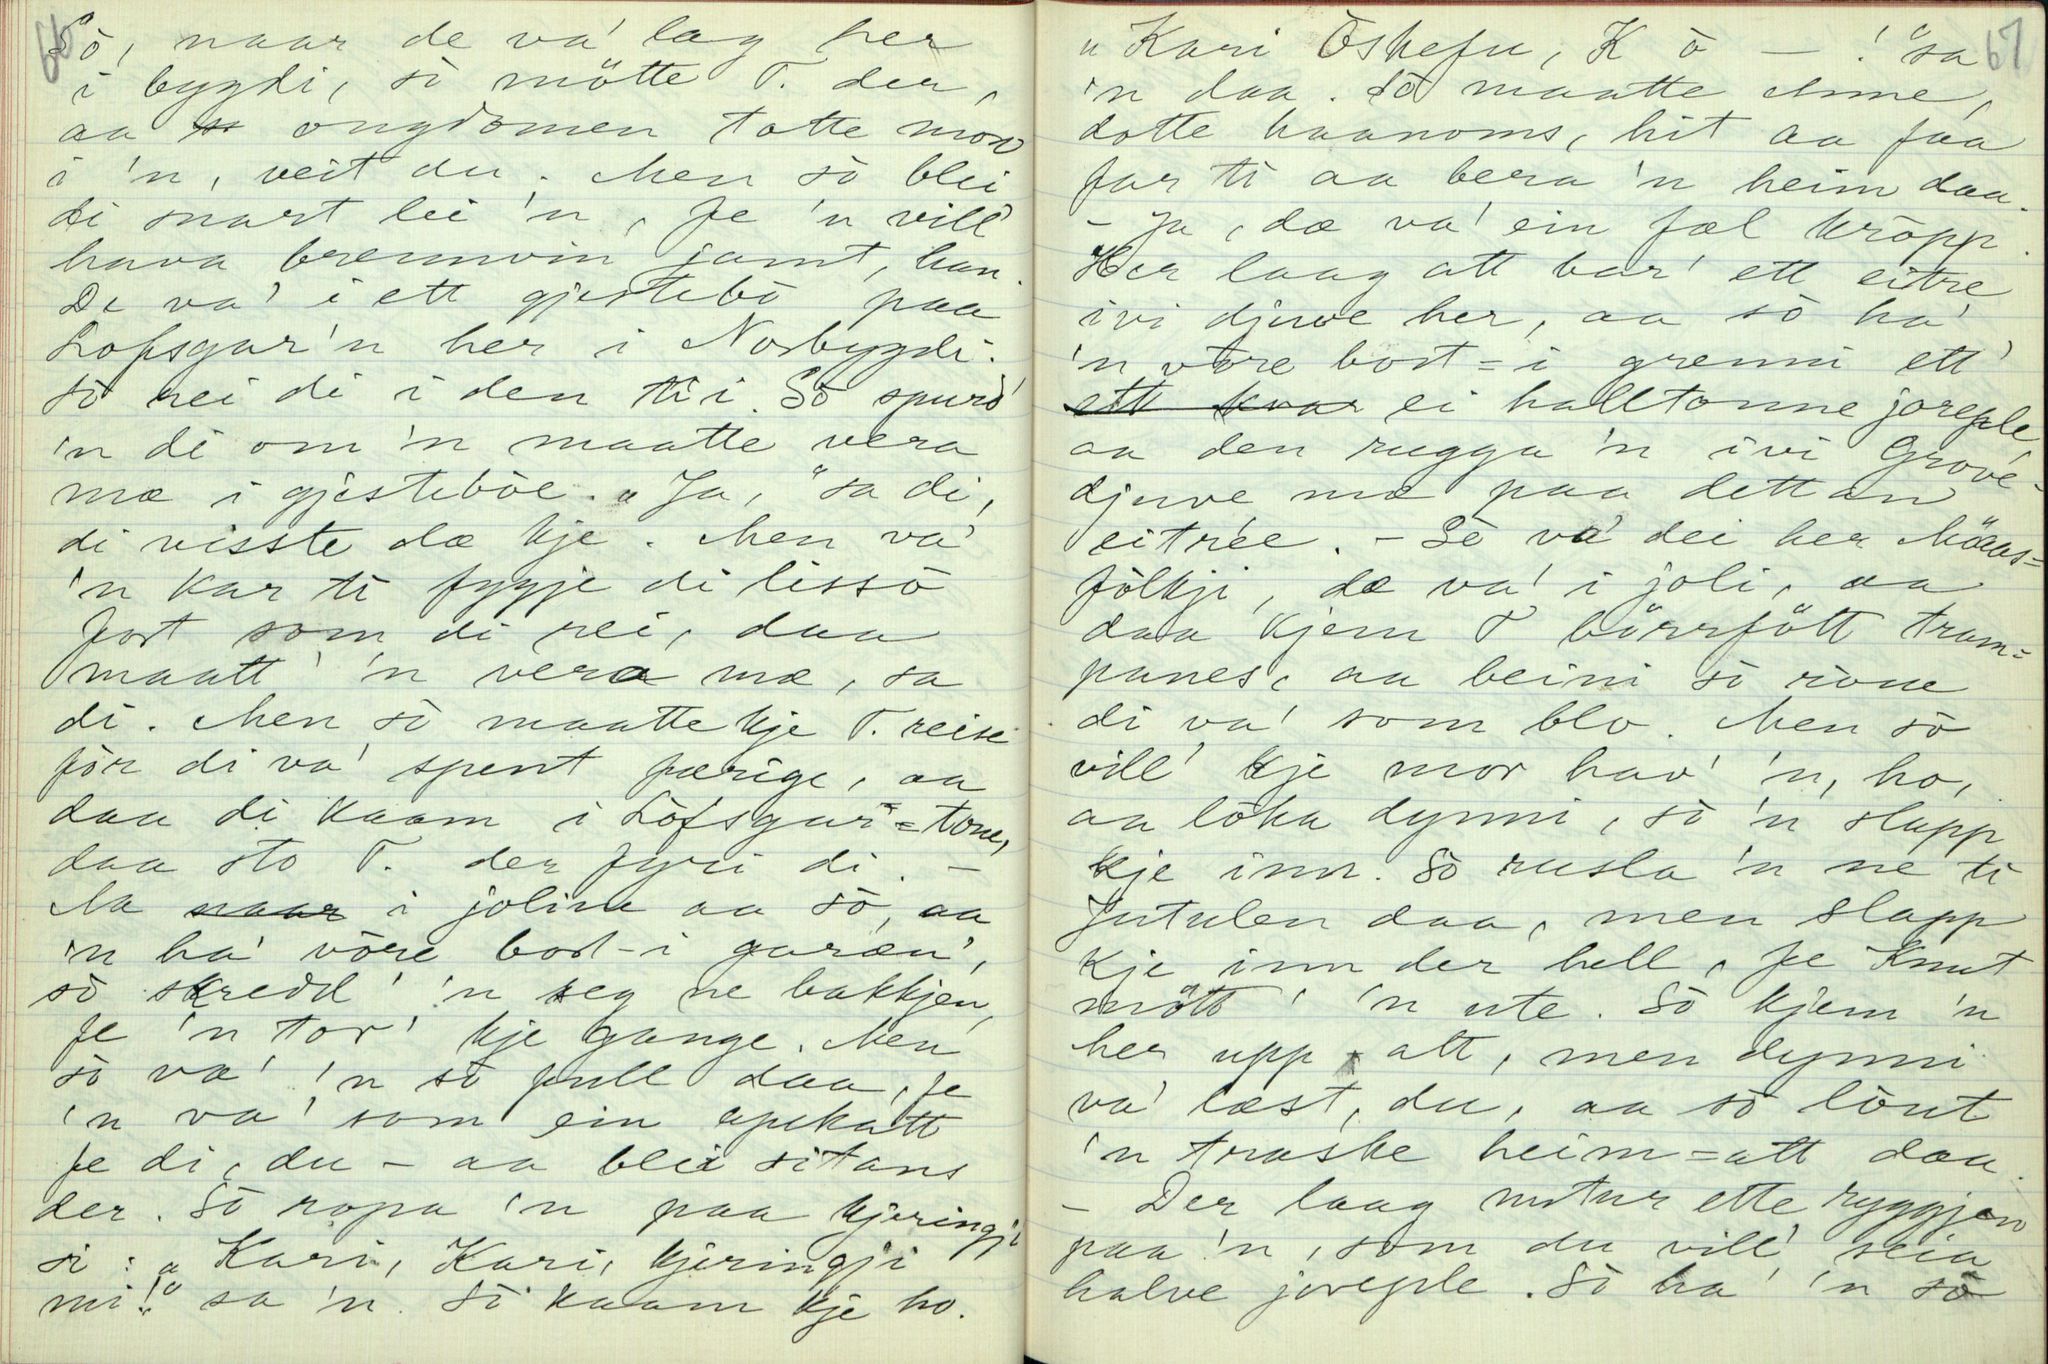 66
Sò, naar de va' lag her
i bygdi, sò mötte T. der,
aa ongdomen totte mor
i 'n, veit du. Men sò blei
di snart lei 'n, fe 'n vill'
hava brennvin jamt, han.
De va' i ett gjestebò paa
Lofsgar'n her i Norbygdi.
Sò rei di i den tìi. Sò spurd'
'n di om 'n maatte vera
mæ i gjestebòe. „Ja," sa di,
di visste dæ kje. Men va'
'n kar ti fygje di lissò
fort som di rei, daa
maatt' 'n vera mæ, sa
di. Men sò maatte kje T. reise
fòr di va' spent færige, aa
daa di kaam i Lòfsgar-tone,
daa sto T. der fyri di. -
Aa naar i jolinn aa sò, aa
'n ha' vòre bort-i garæn',
sò skredd' 'n seg ne bakkjen,
fe 'n tor' kje gange. Men
sò va' 'n sò full daa, fe
'n va' som ein apekatt
fe di, du - aa blei sitans
der. Sò ropa 'n paa kjeringji
si: „Kari, Kari, kjeringji
mi!" sa 'n. Sò kaam kje ho.
67
„Kari Òskefu, K ò - !" sa
'n daa. Sò maatte Anne,
dotte haanoms, hit aa faa
far ti aa bera 'n heim daa.
- Ja, dæ va' ein fæl kròpp.
Her laag att bar' ett eitre
ivi djuve her, aa sò ha'
'n vòre bort-i grenni ett'
ett kvar ei halltonne joreple
aa den rugga 'n ivi Grove-
djuve mæ paa dettan
eitrée. - Sò va' dei her Möaas-
fòlkji, dæ va' i joli, aa
daa kjem T börrfött tram-
panes, aa beini sòròue
di va' som blo. Men sò
vill' kje mor hav' 'n, ho,
aa lòka dynni, sò 'n slapp
kje inn. Sò rusla 'n ne ti
Jutulen daa, men slapp
kje inn der hell, fe Knut
mött' 'n ute. Sò kjem 'n
her upp att, men dynni
va' læst, du, aa sò lòut
'n traske heim-att daa.
- Der laag mstur ette ryggjen
paa 'n, som du vill' seia
halve joreple. Sò ha' 'n sò